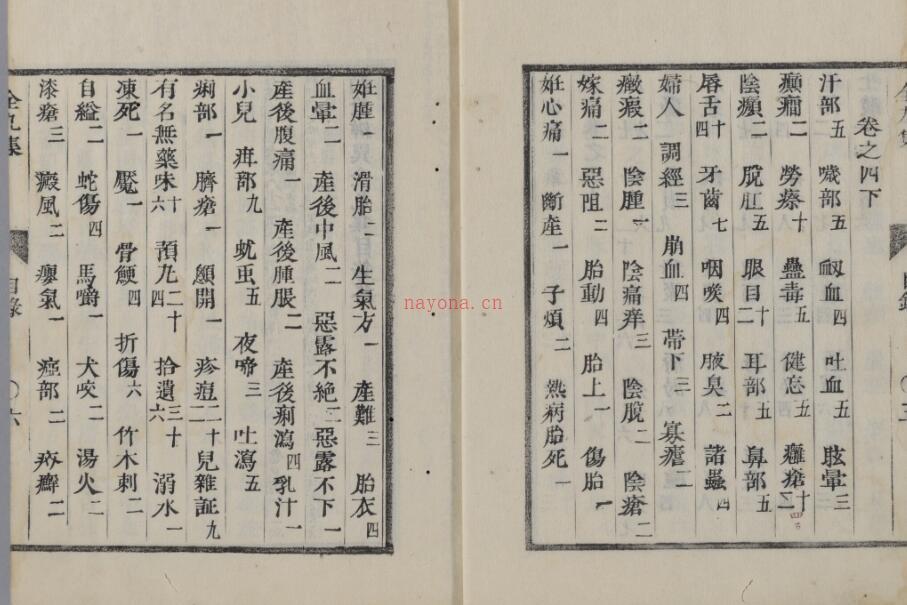 卷之四下
汗部五 噦部五 衂血四 吐血五 眩暈三
癲癎二 勞瘵十 蠱毒五 健忘五 癰瘡十二
陰㿗二 脫肛五 眼目十二 耳部五 鼻部五
唇舌十四 牙齒七 咽喉四 腋臭二 諸蟲四
婦人 調經三 崩血四 帶下三 寡瘡二
癥瘕二 陰腫一 陰痛痒三 陰脫二 陰瘡二
嫁痛二 惡阻二 胎動四 胎上一 傷胎一
妊心痛一 斷產一 子煩二 熱病胎死一
妊腫一 滑胎二 生氣方一 產難三 胎衣四
血暈二 產後中風二 惡露不絕三 惡露不下一
產後腹痛一 產後腫脹二 產後痢瀉四 乳汁一
小兒 疳部九 蚘虫五 夜啼三 吐瀉五
痢部一 臍瘡一 顖開一 疹痘二十二 兒雜証九
有名無藥味十六 預丸二十四 拾遺三十六 溺水一
凍死一 魘一 骨鯁四 折傷六 竹木刺二
自縊二 蛇傷四 馬嚼二 犬咬二 湯火二
漆瘡三 癜風二 癭氣一 痓部二 疥癬二
目錄
六
nayona.cn